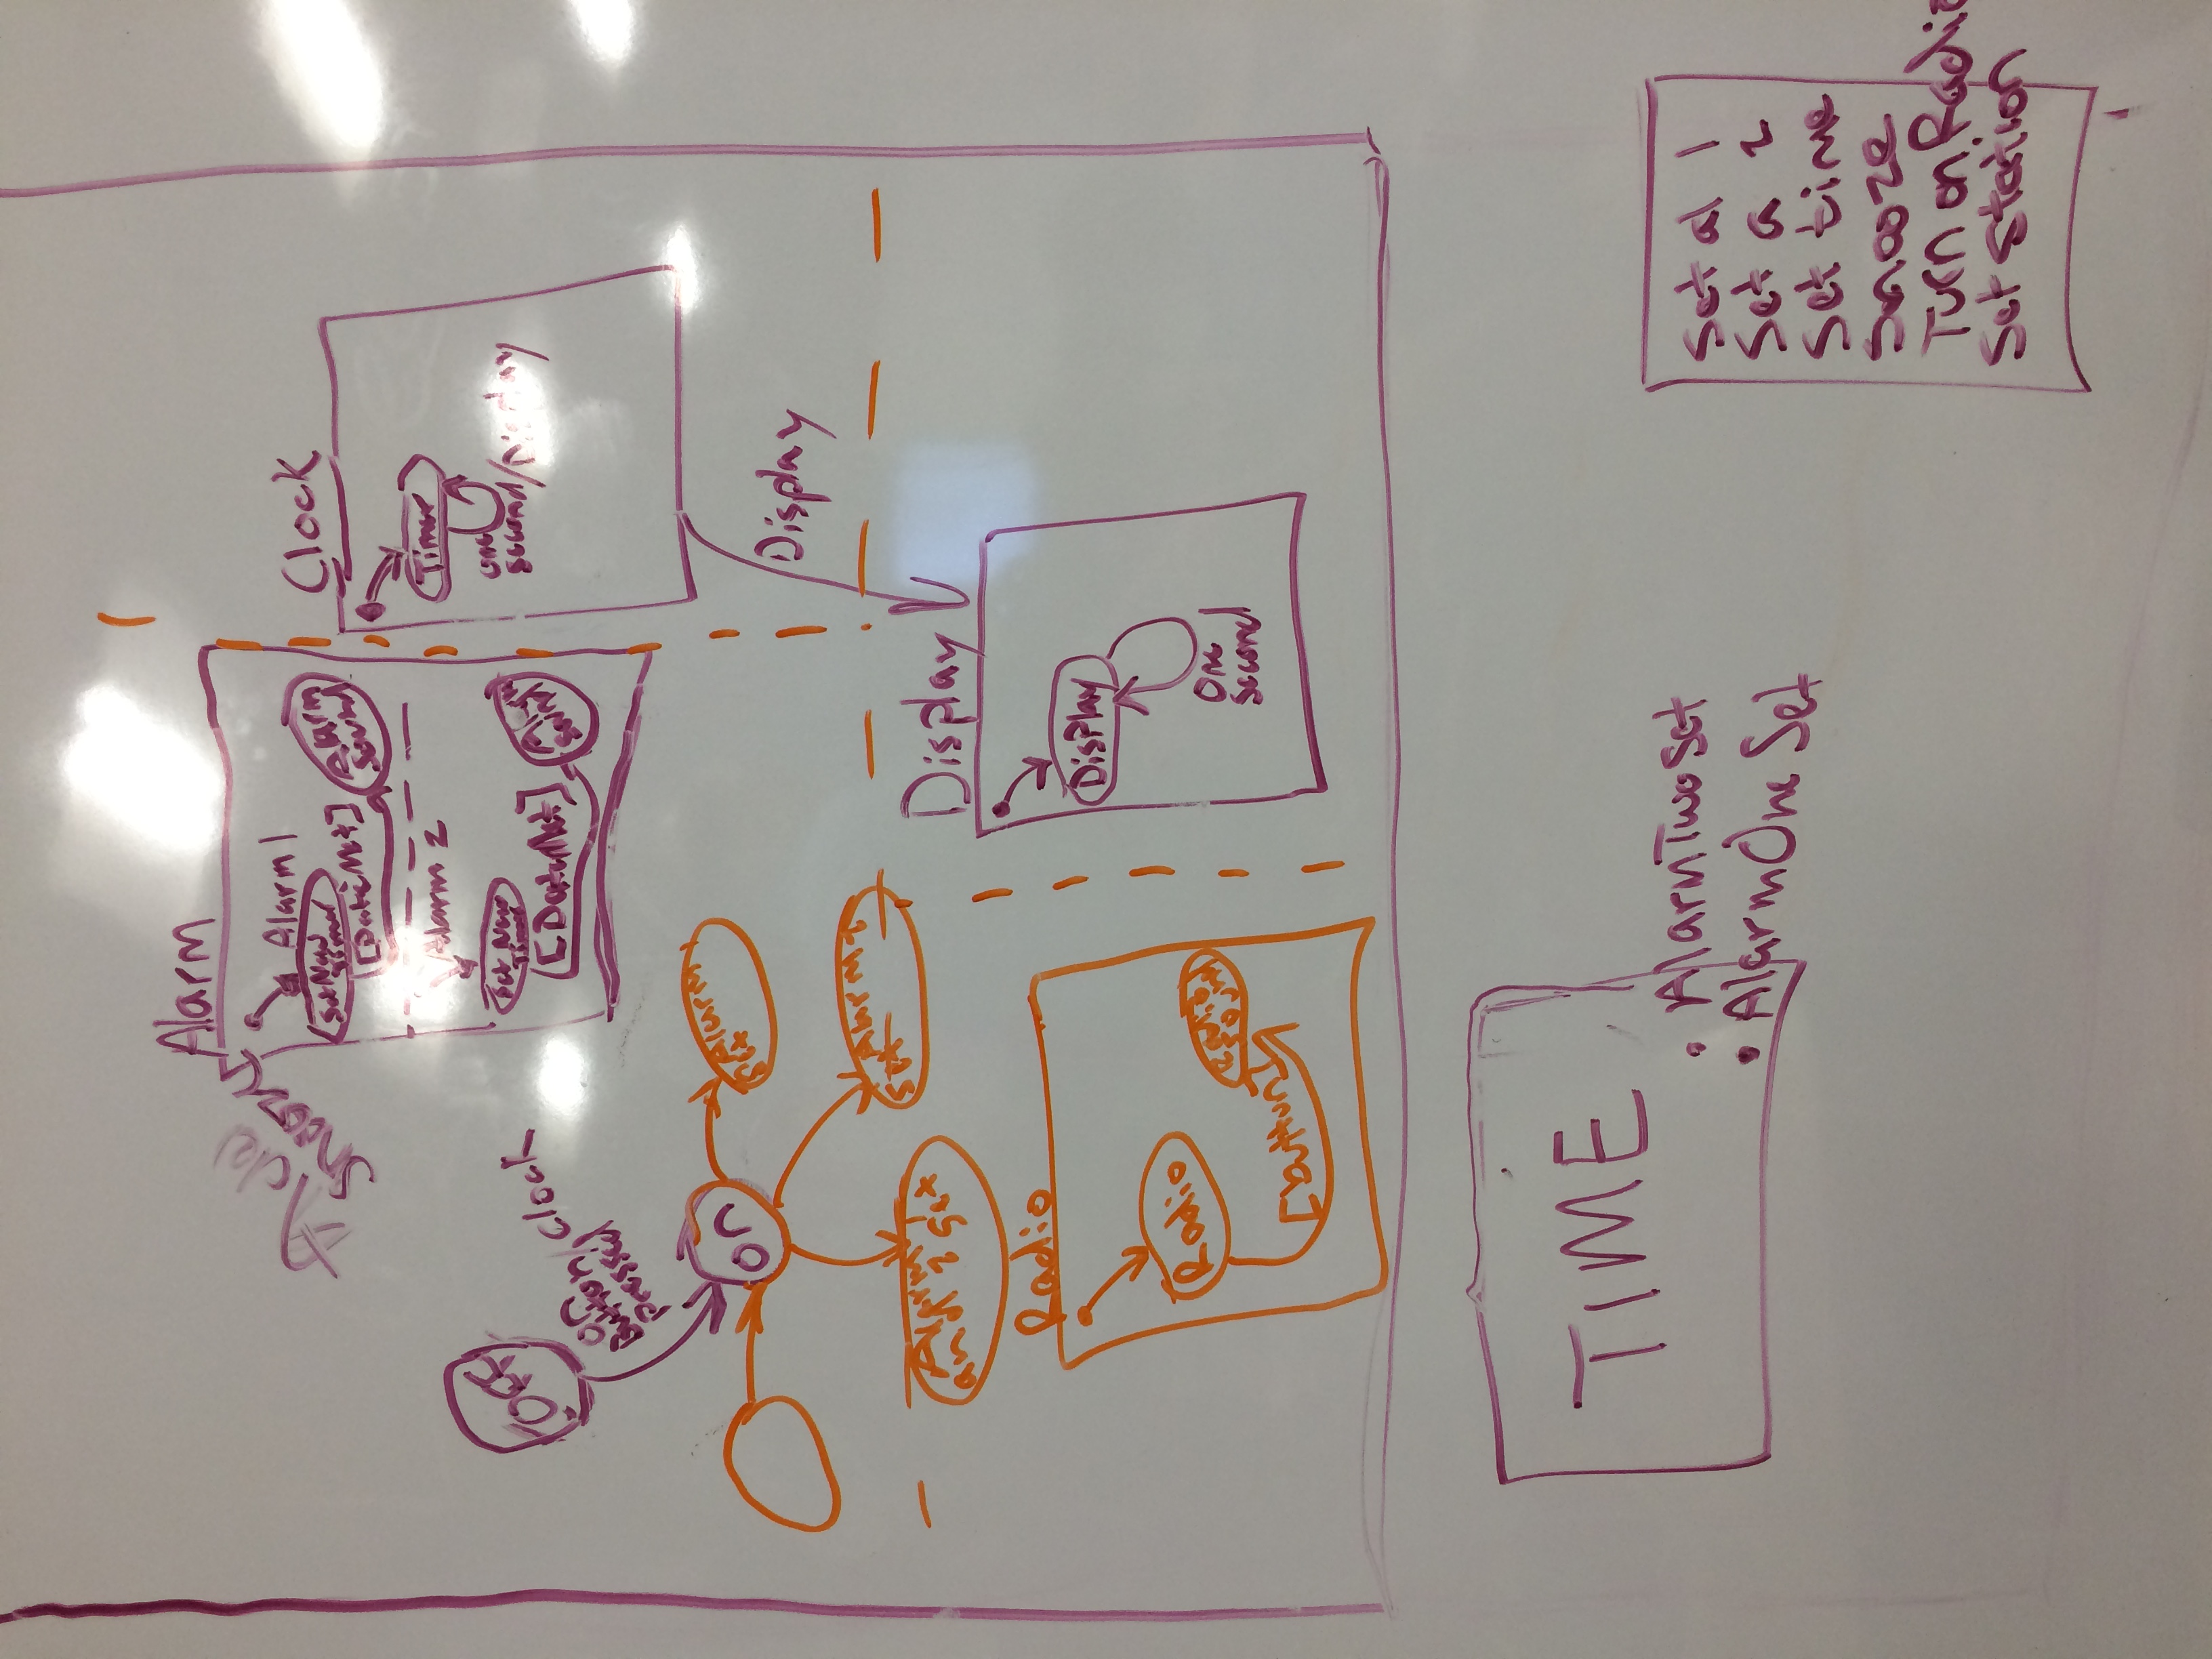 Alarm
Add
Snooze
Alarm 1
Set New
Timer
[DateMet]
Alarm
Sound
Alarm 2
Set New
Timer
[DateMet]
Alarm
Sound
Clock
Timer
one
second/Display
OFF
on
Button/Clock
pressed
on
Alarm
set
Alarm 2
set
Alarm 1
and 2 set
Display
Display
Display
One
Second
Radio
Radio
Radio
Sound
[button]
TIME
• AlarmTwoSet
• AlarmOneSet
Set al 1
Set a 2
Set time
Snooze
Turn on Radio
Set Station